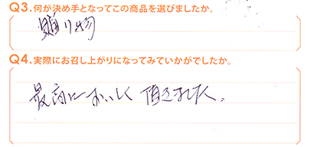 Q3.何が決め手となってこの商品を選びましたか。
贈り物
Q4.実際にお召し上がりになってみていかがでしたか。
最高においしく頂きました。